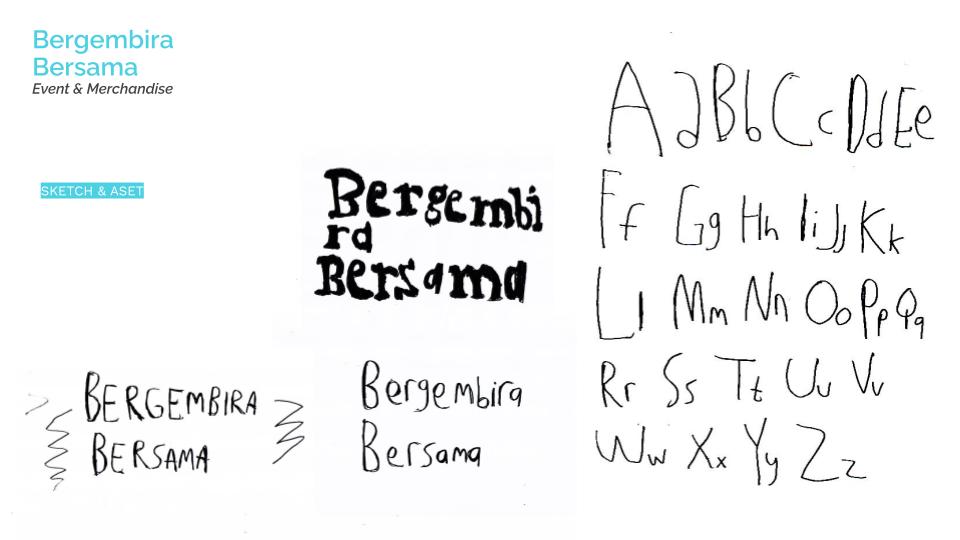 Bergembira
Bersama
Event & Merchandise
SKETCH & ASET
Bergembi
ra
Bersama
BERGEMBIRA
BERSAMA
Bergembira
Bersama
A a B b C c D d E e
F f G g H h I i J j K k
L l M m N n O o P p Q q
R r S s T t U u V v
W w X x Y y Z z